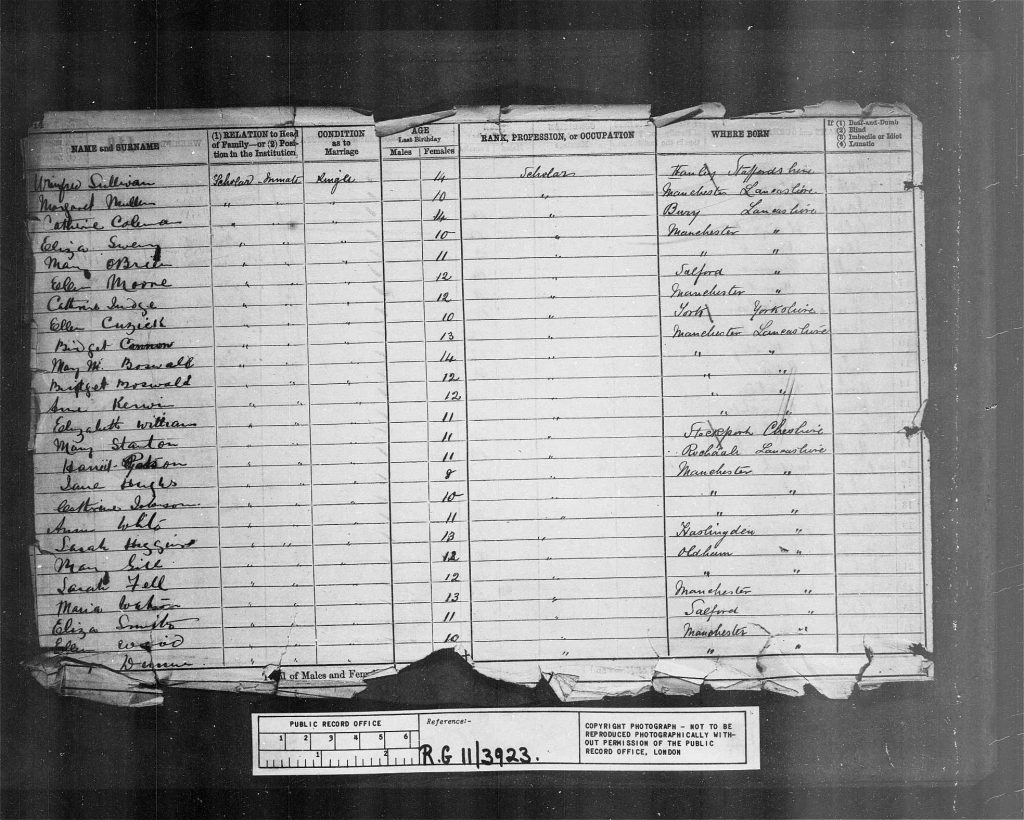 NAME and SURNAME | (1) RELATION to Head of Family—or (2) Position in the Institution | CONDITION as to Marriage | AGE Last Birthday Males Females | RANK, PROFESSION, or OCCUPATION | WHERE BORN | If (1) Deaf-and-Dumb (2) Blind (3) Imbecile or Idiot (4) Lunatic
Winifred Sullivan Scholar Inmate Single 14 Scholar Hanley Staffordshire
Margaret Mullen " " " 10 " Manchester Lancashire
Cathrine Coleman " " " 14 " Bury Lancashire
Eliza Sweny " " " 10 " Manchester "
Mary O'Brien " " " 11 " " "
Ellen Moore " " " 12 " Salford "
Cathrine Judge " " " 12 " Manchester "
Ellen Cuzick " " " 10 " York Yorkshire
Bridget Cannon " " " 13 " Manchester Lancashire
Mary M. Boswald " " " 14 " " "
Bridget Boswald " " " 12 " " "
Ann Kerwin " " " 12 " " "
Elizabeth William " " " 11 " " "
Mary Stanton " " " 11 " Stockport Cheshire
Harriet 11 " Rochdale Lancashire
Jane Hughs " " " 8 " Manchester "
Cathrine Johnson " " " 10 " " "
Annie White " " " 11 " " "
Sarah Higgins " " " 13 " Haslingden "
Mary Gill " " " 12 " Oldham "
Sarah Fell " " " 12 " " "
Maria Watson " " " 13 " Manchester "
Eliza Smith " " " 11 " Salford "
Ellen Wood " " " 10 " Manchester "
" " " " " "
of Males and
PUBLIC RECORD OFFICE
1 2 3 4 5 6
1 2
Reference:-
R.G 11/3923.
COPYRIGHT PHOTOGRAPH - NOT TO BE
REPRODUCED PHOTOGRAPHICALLY WITH-
OUT PERMISSION OF THE PUBLIC
RECORD OFFICE, LONDON